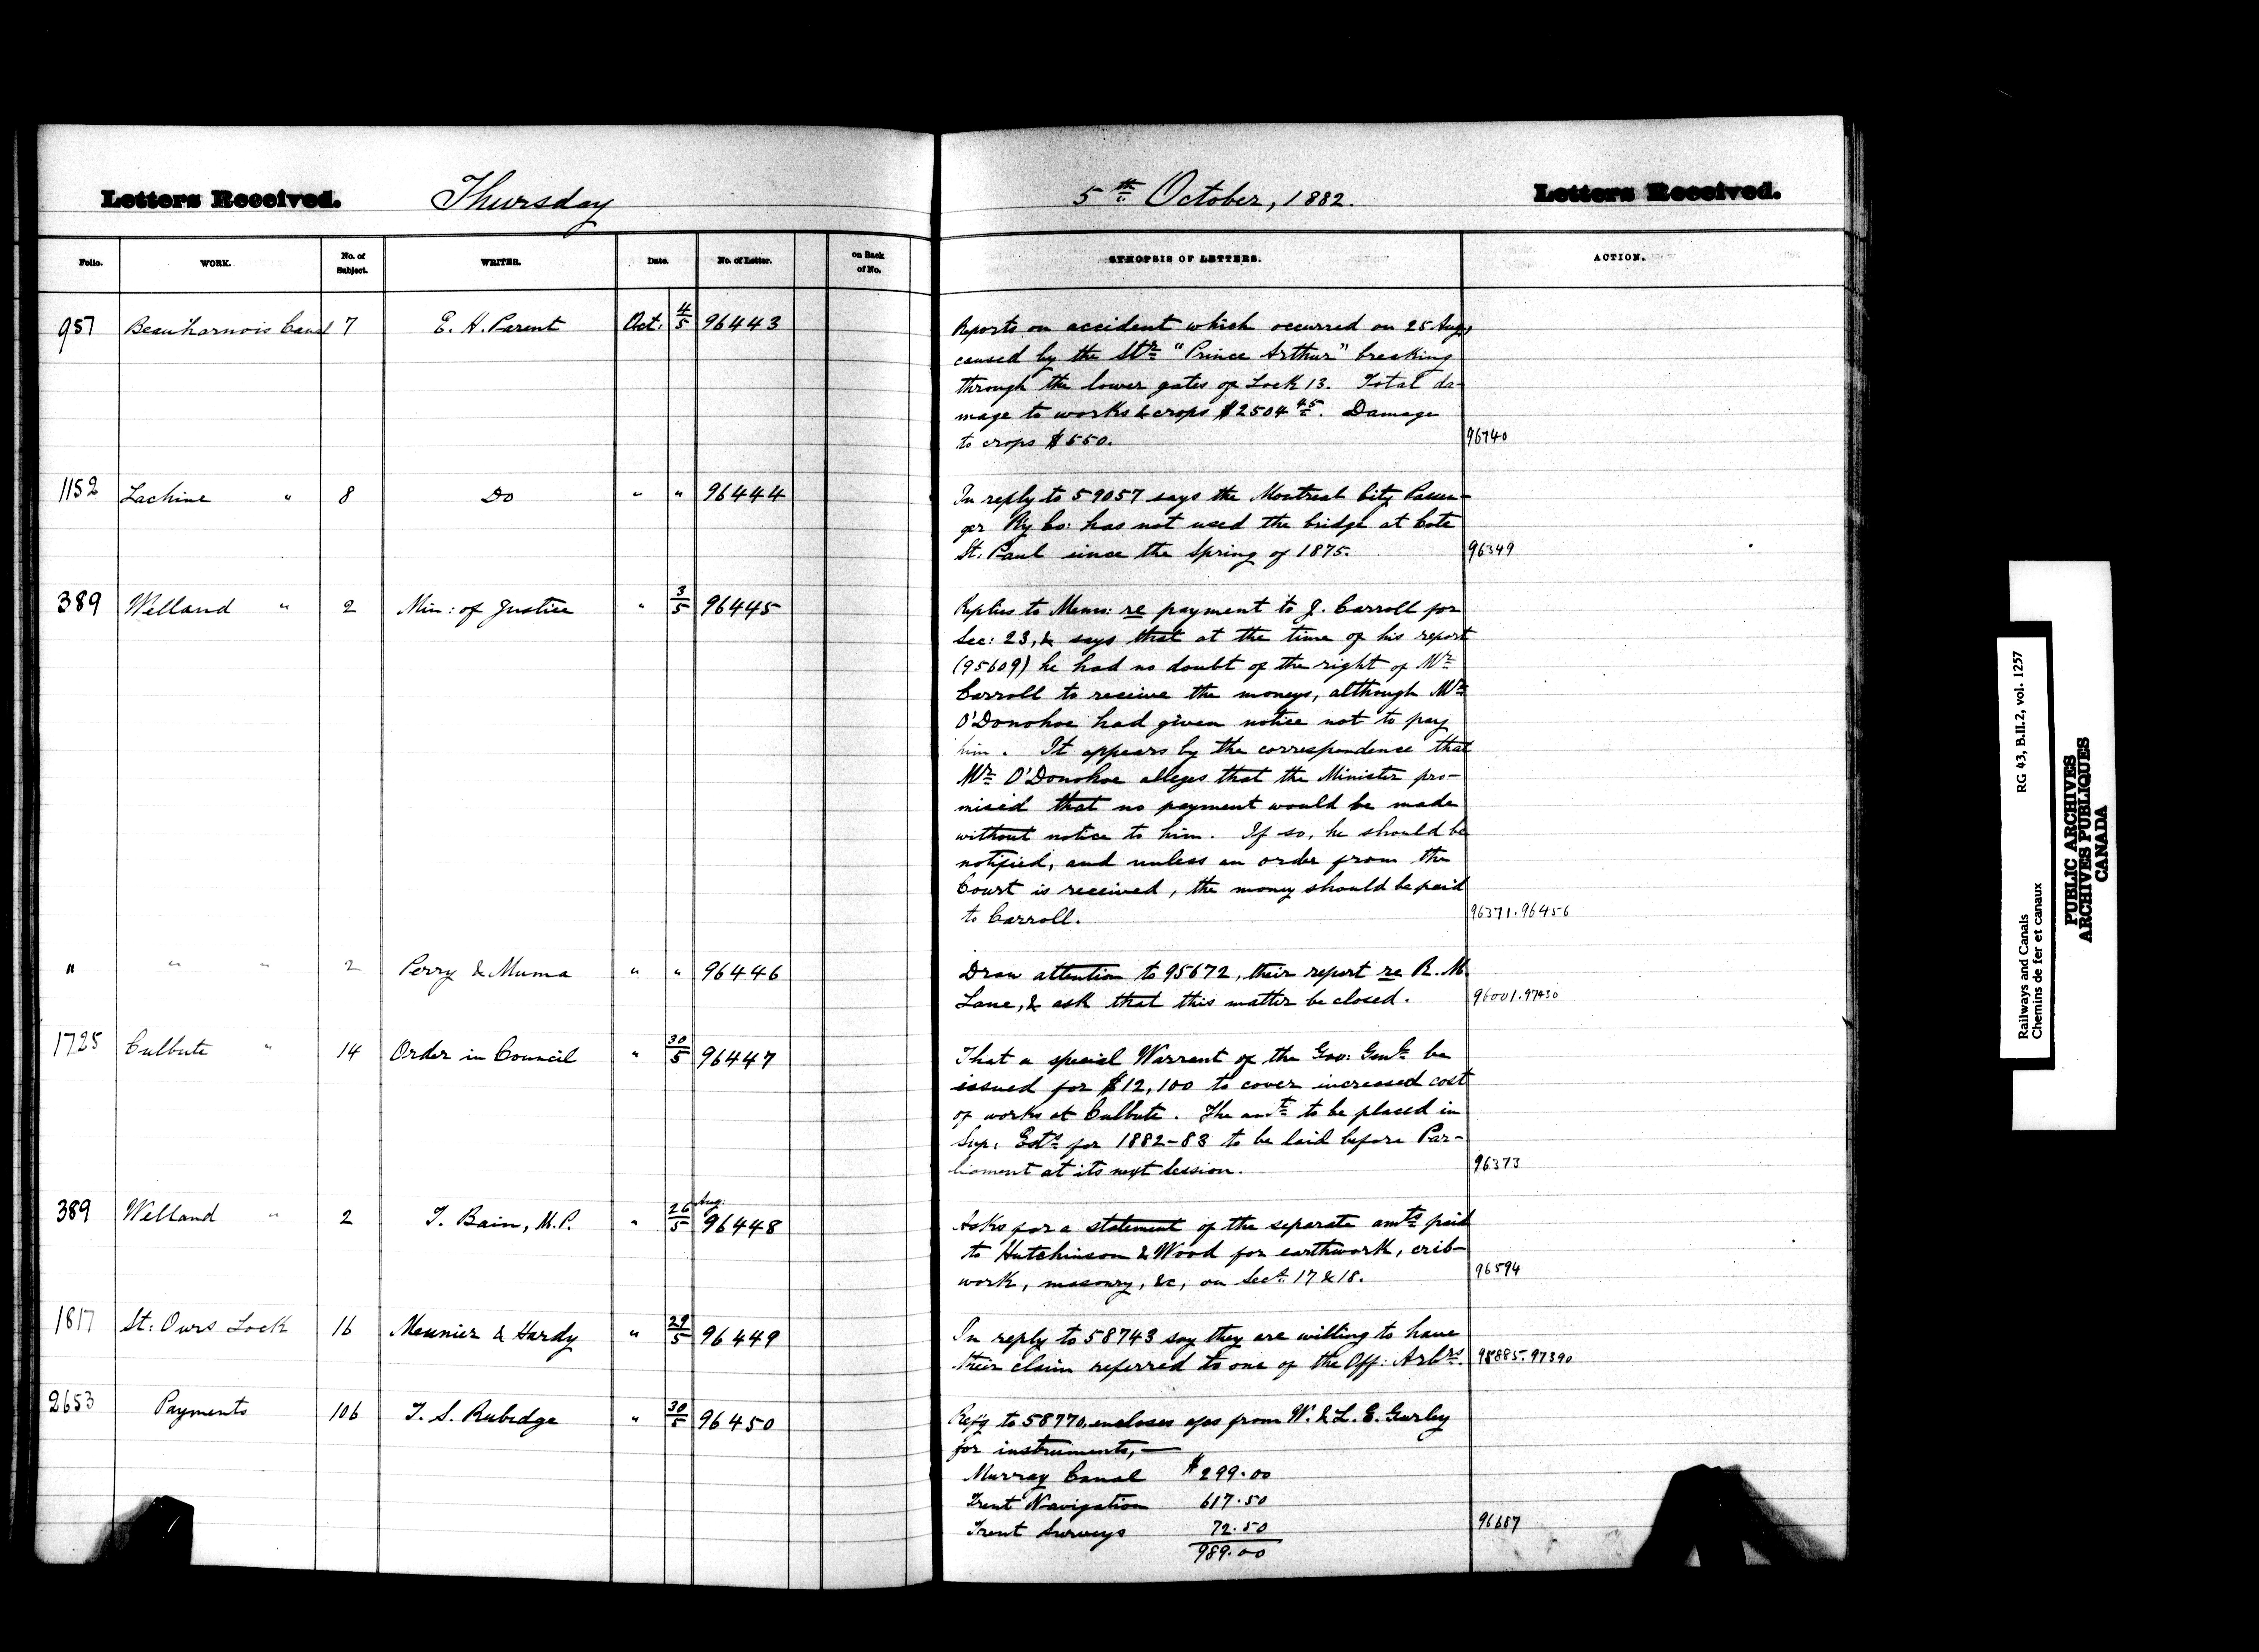 Letters Received. Thursday 5th October, 1882. Letters Received.
Folio. WORK. No. of Subject. WRITER. Date. No. of Letter. on Back of No. SYNOPSIS OF LETTERS. ACTION.
957 Beauharnois Canal 7 E. H. Parent Oct: 4/5 96443 Reports on accident which occurred on 25 Aug:
caused by the Str "Prince Arthur" breaking
through the lower gates of Lock 13. Total da-
mage to works & crops $2504 45. Damage
to crops $550. 96740
1152 Lachine " 8 Do " " 96444 In reply to 59057 says the Montreal City Passen-
ger Ry Co: has not used the bridge at Cote
St: Paul since the Spring of 1875. 96349
389 Welland " 2 Min: of Justice " 3/5 96445 Replies to Memo: re payment to J. Carroll for
Sec: 23, & says that at the time of his report
(95609) he had no doubt of the right of Mr
Carroll to receive the moneys, although Mr
O'Donohoe had given notice not to pay
him. It appears by the correspondence that
Mr O'Donohoe alleges that the Minister pro-
mised that no payment would be made
without notice to him. If so, he should be
notified, and unless an order from the
Court is received, the money should be paid
to Carroll. 96371.96456
" " " 2 Perry & Muma " " 96446 Draw attention to 95672, their report re R. M.
Lane, & ask that this matter be closed. 96001.97430
1725 Culbute " 14 Order in Council " 30/5 96447 That a special Warrant of the Gov: Genl be
issued for $12,100 to cover increased cost
of works at Culbute. The amt to be placed in
Sup: Ests for 1882-83 to be laid before Par-
liament at its next Session. 96373
389 Welland " 2 T. Bain, M.P. " 26/5 Aug: 96448 Asks for a statement of the separate amts paid
to Hutchinson & Wood for earthwork, crib-
work, masonry, &c, on Sect. 17 & 18. 96594
1817 St: Ours Lock 16 Meunier & Hardy " 29/5 96449 In reply to 58743 say they are willing to have
their claim referred to one of the Off: Arbrs. 95885.97390
2653 Payments 106 T. S. Rubidge " 30/5 96450 Refg to 58770, encloses a/cs from W. & L. E. Gurley
for instruments,—
Murray Canal $299.00
Trent Navigation 617.50
Trent Surveys 72.50 96687
989.00
Railways and Canals RG 43, B.II.2, vol. 1257
Chemins de fer et canaux
PUBLIC ARCHIVES
ARCHIVES PUBLIQUES
CANADA